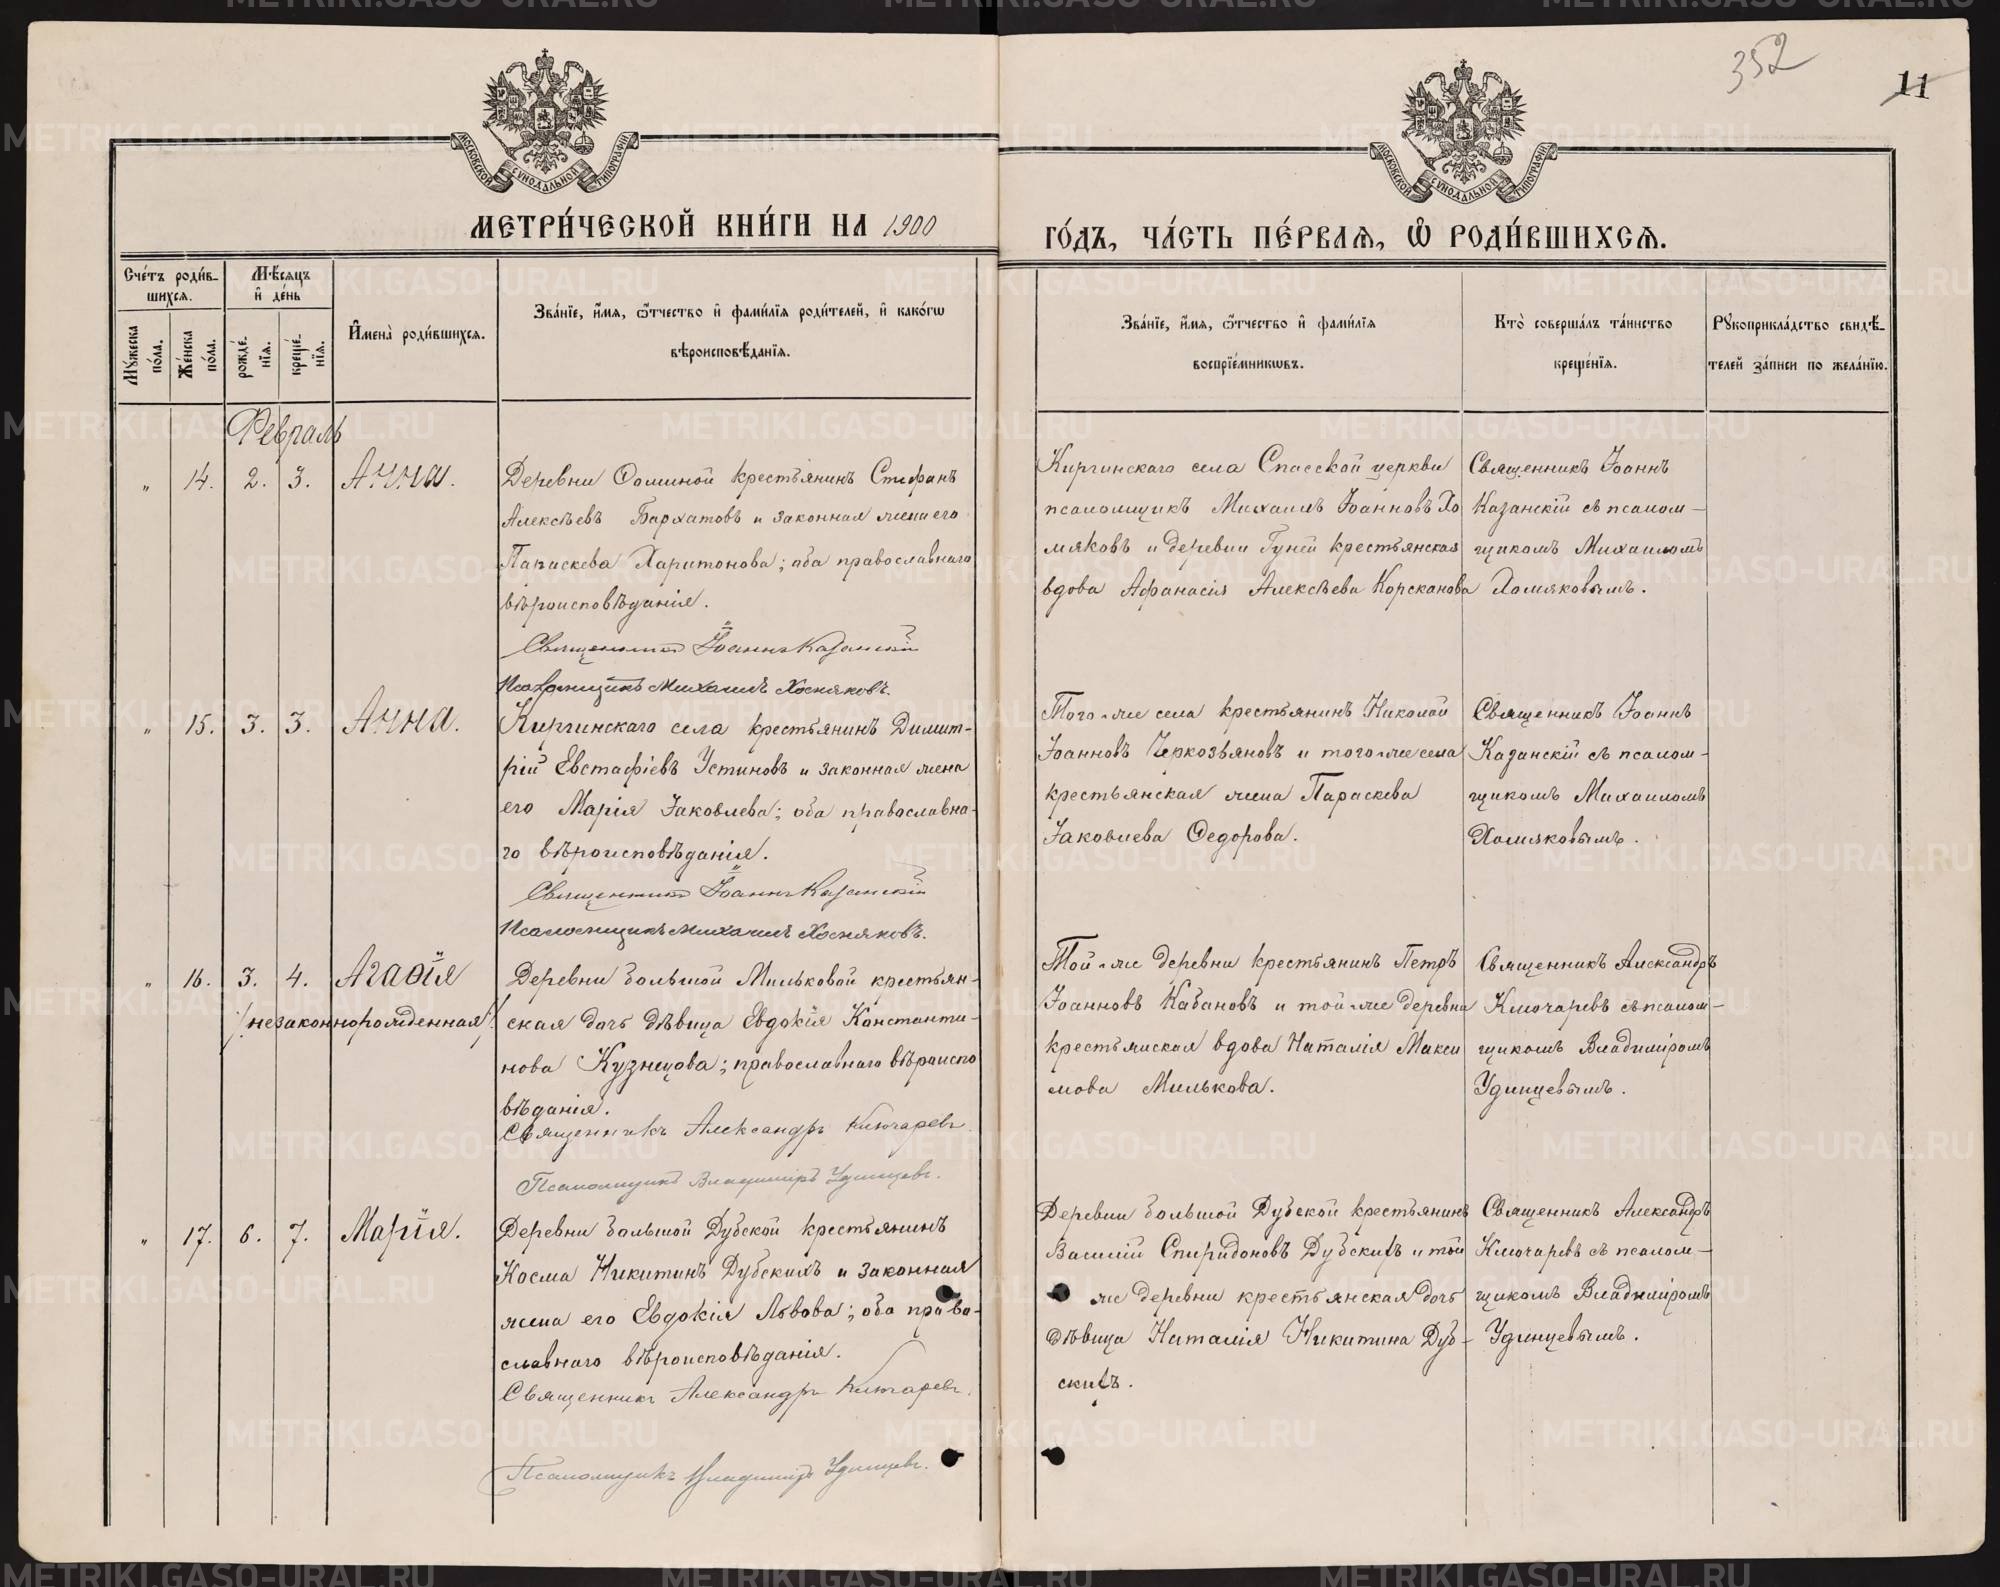 352
11
МОСКОВСКОЙ СѴНОДАЛЬНОЙ ТИПОГРАФІИ
МОСКОВСКОЙ СѴНОДАЛЬНОЙ ТИПОГРАФІИ
МЕТРИ́ЧЕСКОЙ КНИ́ГИ НА 1900
ГО́ДЪ, ЧА́СТЬ ПЕ́РВАЯ, Ѡ РОДИ́ВШИХСЯ.
Сче́тъ роди́в-
шихся.
Мѣ́сяцъ
и де́нь
Му́жеска
по́ла.
Же́нска
по́ла.
рожде́-
нїя.
креще́-
нїя.
Имена̀ роди́вшихся.
Зва́нїе, и́мя, ѻ҆́тчество и фами́лїя роди́телей, и како́гѡ
вѣроисповѣ́данїя.
Зва́нїе, и́мя, ѻ҆́тчество и фами́лїя
воспрїе́мникѡвъ.
Кто̀ соверша́лъ та́инство
креще́нїя.
Рꙋкоприкла́дство свидѣ́-
телей за́писи по жела́нїю.
Февраль
" 14. 2. 3. Анна.
Деревни Ѳоминой крестьянинъ Стефанъ
Алексѣевъ Бархатовъ и законная жена его
Параскева Харитонова; оба православнаго
вѣроисповѣданія.
Священникъ Іоаннъ Казанскій
Псаломщикъ Михаилъ Хомяковъ.
Киргинскаго села Спасской церкви
псаломщикъ Михаилъ Іоанновъ Хо
мяковъ и деревни Гуней крестьянская
вдова Афанасія Алексѣева Корсканова
Священникъ Іоаннъ
Казанскій съ псалом-
щикомъ Михаиломъ
Хомяковымъ.
" 15. 3. 3. Анна.
Киргинскаго села крестьянинъ Димит-
рій Евстафіевъ Устиновъ и законная жена
его Марія Іаковлева; оба православна-
го вѣроисповѣданія.
Священникъ Іоаннъ Казанскій
Псаломщикъ Михаилъ Хомяковъ.
Того-же села крестьянинъ Николай
Іоанновъ Черкозьяновъ и того-же села
крестьянская жена Параскева
Іаковлева Ѳедорова.
Священникъ Іоаннъ
Казанскій съ псалом-
щикомъ Михаиломъ
Хомяковымъ.
" 16. 3. 4. Агаѳія
/незаконнорожденная/
Деревни большой Мильковой крестьян-
ская дочь дѣвица Евдокія Константи-
нова Кузнецова; православнаго вѣроиспо
вѣданія.
Священникъ Александръ Ключаревъ
Псаломщикъ Владиміръ Удинцевъ.
Той-же деревни крестьянинъ Петръ
Іоанновъ Кабановъ и той-же деревни
крестьянская вдова Наталія Макси
мова Милькова.
Священникъ Александръ
Ключаревъ съ псалом-
щикомъ Владиміромъ
Удинцевымъ.
" 17. 6. 7. Марія.
Деревни большой Дубской крестьянинъ
Косма Никитинъ Дубскихъ и законная
жена его Евдокія Львова; оба право-
славнаго вѣроисповѣданія.
Священникъ Александръ Ключаревъ.
Псаломщикъ Владиміръ Удинцевъ.
Деревни большой Дубской крестьянинъ
Василій Спиридоновъ Дубскихъ и той
же деревни крестьянская дочь
дѣвица Наталія Никитина Дуб-
скихъ.
Священникъ Александръ
Ключаревъ съ псалом-
щикомъ Владиміромъ
Удинцевымъ.
METRIKI.GASO-URAL.RU